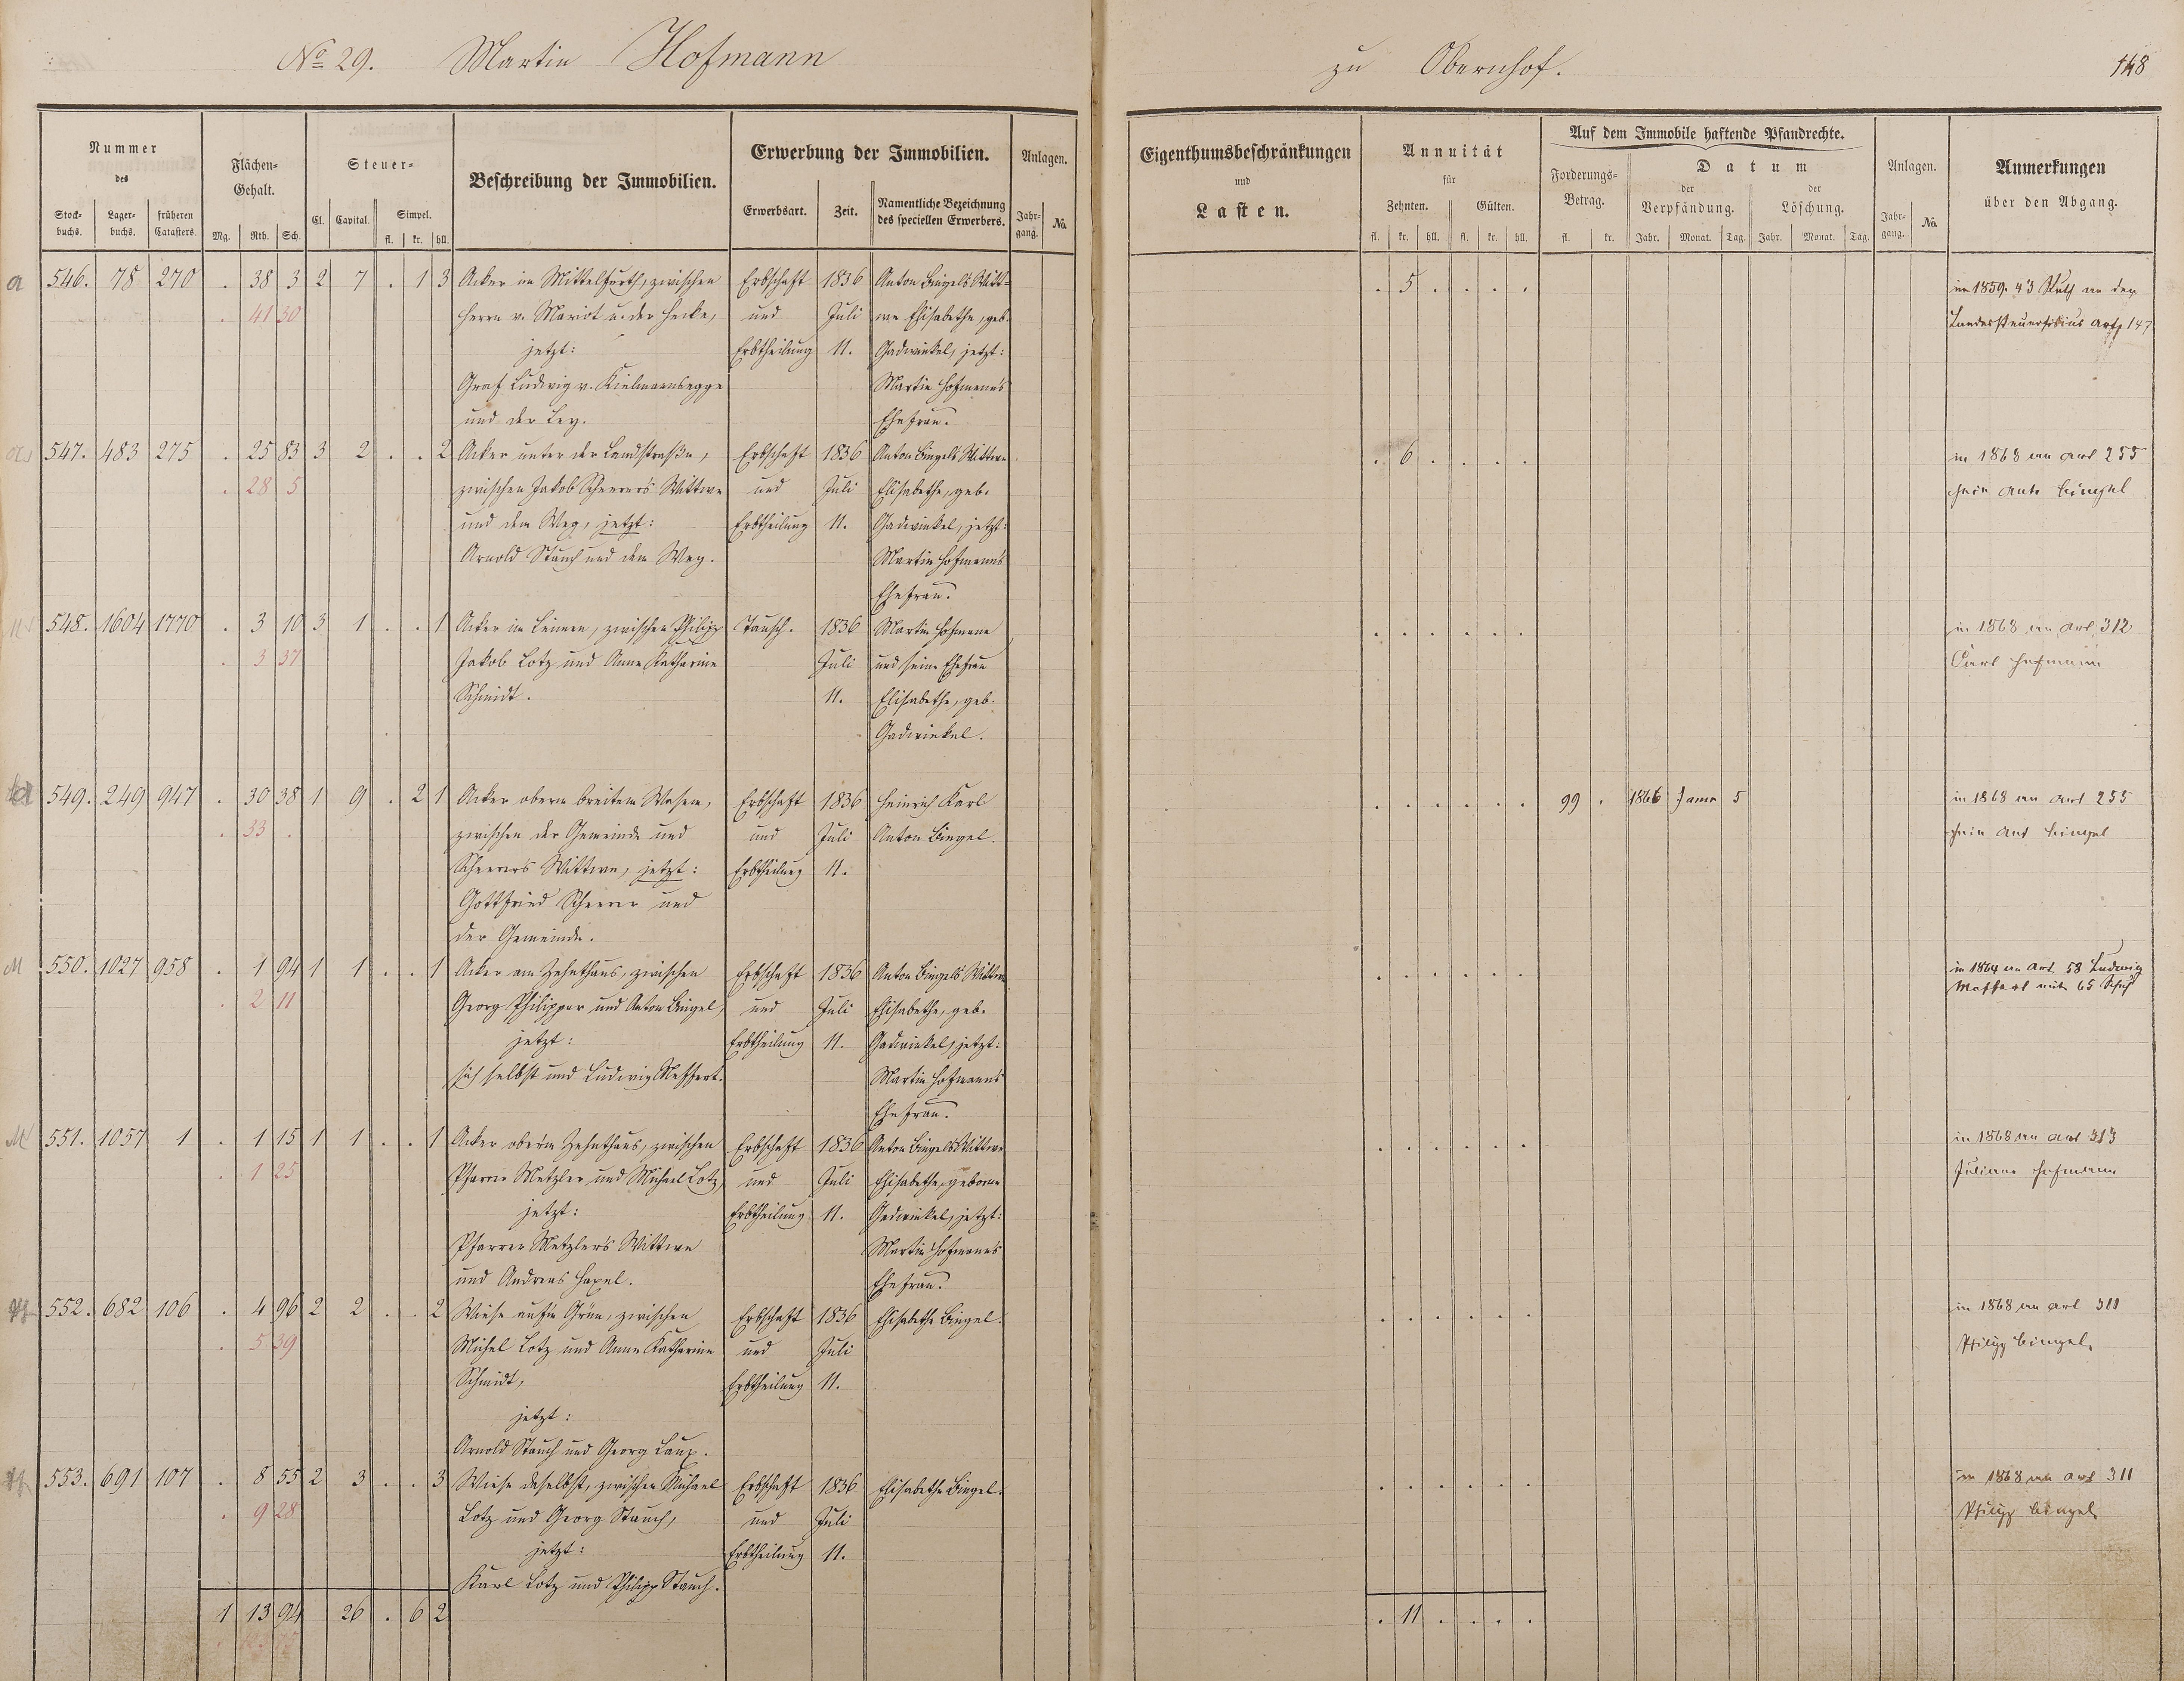 No 29. Martin Hofmann zu Obernhof. 148
Nummer des
Stock-buchs. Lager-buchs. früheren Catasters.
Flächen-Gehalt.
Mg. Rth. Sch.
Steuer-
Cl. Capital. Simpel.
fl. kr. hll.
Beschreibung der Immobilien.
Erwerbung der Immobilien.
Erwerbsart. Zeit. Namentliche Bezeichnung des speciellen Erwerbers.
Anlagen.
Jahr-gang. No.
Eigenthumsbeschränkungen
und
Lasten.
Annuität
für
Zehnten. Gülten.
fl. kr. hll. fl. kr. hll.
Auf dem Immobile haftende Pfandrechte.
Forderungs-Betrag.
fl. kr.
Datum
der Verpfändung. der Löschung.
Jahr. Monat. Tag. Jahr. Monat. Tag.
Anlagen.
Jahr-gang. No.
Anmerkungen
über den Abgang.
a 546. 78 270 . 38 3 2 7 . 1 3 Acker im Mittelfurth, zwischen Erbschaft 1836 Anton Bingels Witt- . 5 . . . . in 1859. 43 Ruth an den
. 41 30 Herrn v. Mariot u. der Hecke, und Juli we Elisabethe, geb. Landessteuerfiskus Art. 147
jetzt: Erbtheilung 11. Gadwinkel, jetzt:
Graf Ludwig v. Kielmannsegge Martin Hofmann's
und der Ley. Ehefrau.
547. 483 275 . 25 83 3 2 . . 2 Acker unter der Landstraße, Erbschaft 1836 Anton Bingels Wittwe . 6 . . . . in 1868 an Art 255
. 28 5 zwischen Jakob Scheerer's Wittwe und Juli Elisabethe, geb. Hein Ant Bingel
und dem Weg, jetzt: Erbtheilung 11. Gadwinkel, jetzt:
Arnold Stauch und dem Weg. Martin Hofmann's
Ehefrau.
548. 1604 1770 . 3 10 3 1 . . 1 Acker im Leimen, zwischen Philipp Tausch. 1836 Martin Hofmann . . . . . . in 1868 an Art. 312
. 3 37 Jakob Lotz und Anne Katharine Juli und seine Ehefrau Carl Hofmann
Schmidt. 11. Elisabethe, geb.
Gadwinkel.
549. 249 947 . 30 38 1 9 . 2 1 Acker oberm breitem Wasem, Erbschaft 1836 Heinrich Karl . . . . . . 99 . 1866 Janr 5 in 1868 an Art 255
. 33 . zwischen der Gemeinde und und Juli Anton Bingel. Hein Ant Bingel
Scheerer's Wittwe, jetzt: Erbtheilung 11.
Gottfried Scheerer und
der Gemeinde.
M 550. 1027 958 . 1 94 1 1 . . 1 Acker am Zehnthaus, zwischen Erbschaft 1836 Anton Bingels Wittwe . . . . . . in 1864 an Art. 58 Ludwig
. 2 11 Georg Philippar und Anton Bingel, und Juli Elisabethe, geb. Meffert mit 65 Schuh
jetzt: Erbtheilung 11. Gadwinkel, jetzt:
sich selbst und Ludwig Meffert. Martin Hofmanns
Ehefrau.
M 551. 1057 1 . 1 15 1 1 . . 1 Acker ober'm Zehnthaus, zwischen Erbschaft 1836 Anton Bingels Wittwe . . . . . . in 1868 an Art 313
. 1 25 Pfarrer Metzler und Michael Lotz, und Juli Elisabethe, geborne Juliane Hofmann
jetzt: Erbtheilung 11. Gadwinkel, jetzt:
Pfarrer Metzler's Wittwe Martin Hofmann's
und Andreas Hexel. Ehefrau.
552. 682 106 . 4 96 2 2 . . 2 Wiese auf'm Grün, zwischen Erbschaft 1836 Elisabethe Bingel. . . . . . . in 1868 an Art 311
. 5 39 Michel Lotz und Anne Katharine und Juli Philipp Bingel
Schmidt, Erbtheilung 11.
jetzt:
Arnold Stauch und Georg Laux.
553. 691 107 . 8 55 2 3 . . 3 Wiese daselbst, zwischen Michael Erbschaft 1836 Elisabethe Bingel. . . . . . . in 1868 an Art 311
. 9 28 Lotz und Georg Stauch, und Juli Philipp Bingel
jetzt: Erbtheilung 11.
Karl Lotz und Philipp Stauch.
1 13 94 26 . 6 2 . 11 . . . .